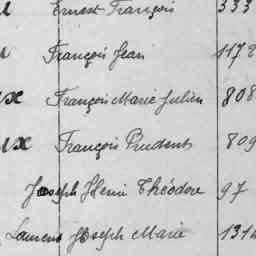 Ernest François 333
François Jean 1172
François Marie Julien 808
François Prudent 809
Joseph Henri Théodore 97
Laurent Joseph Marie 1314